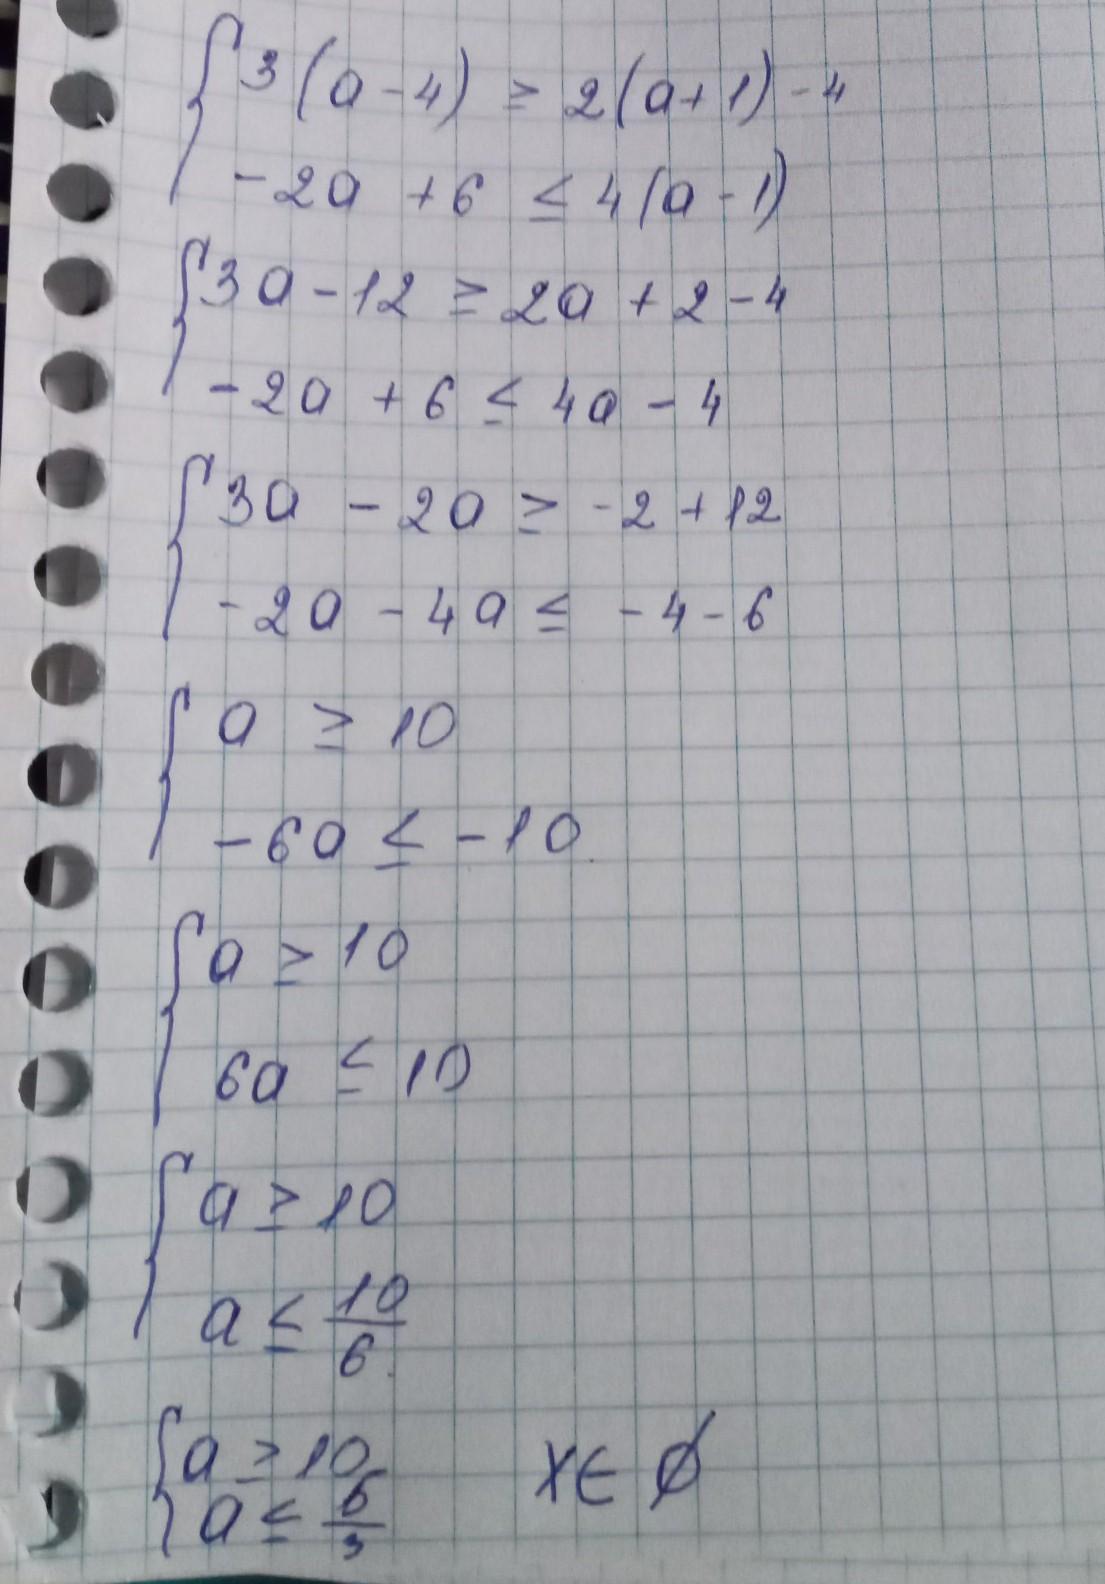 3(a-4) ≥ 2(a+1)-4
-2a +6 ≤ 4(a-1)
3a-12 ≥ 2a+2-4
-2a+6 ≤ 4a-4
3a - 2a ≥ -2+12
-2a - 4a ≤ -4-6
a ≥ 10
-6a ≤ -10
a ≥ 10
6a ≤ 10
a ≥ 10
a ≤ 10/6
a ≥ 10
a ≤ 6/3
x∈ ∅